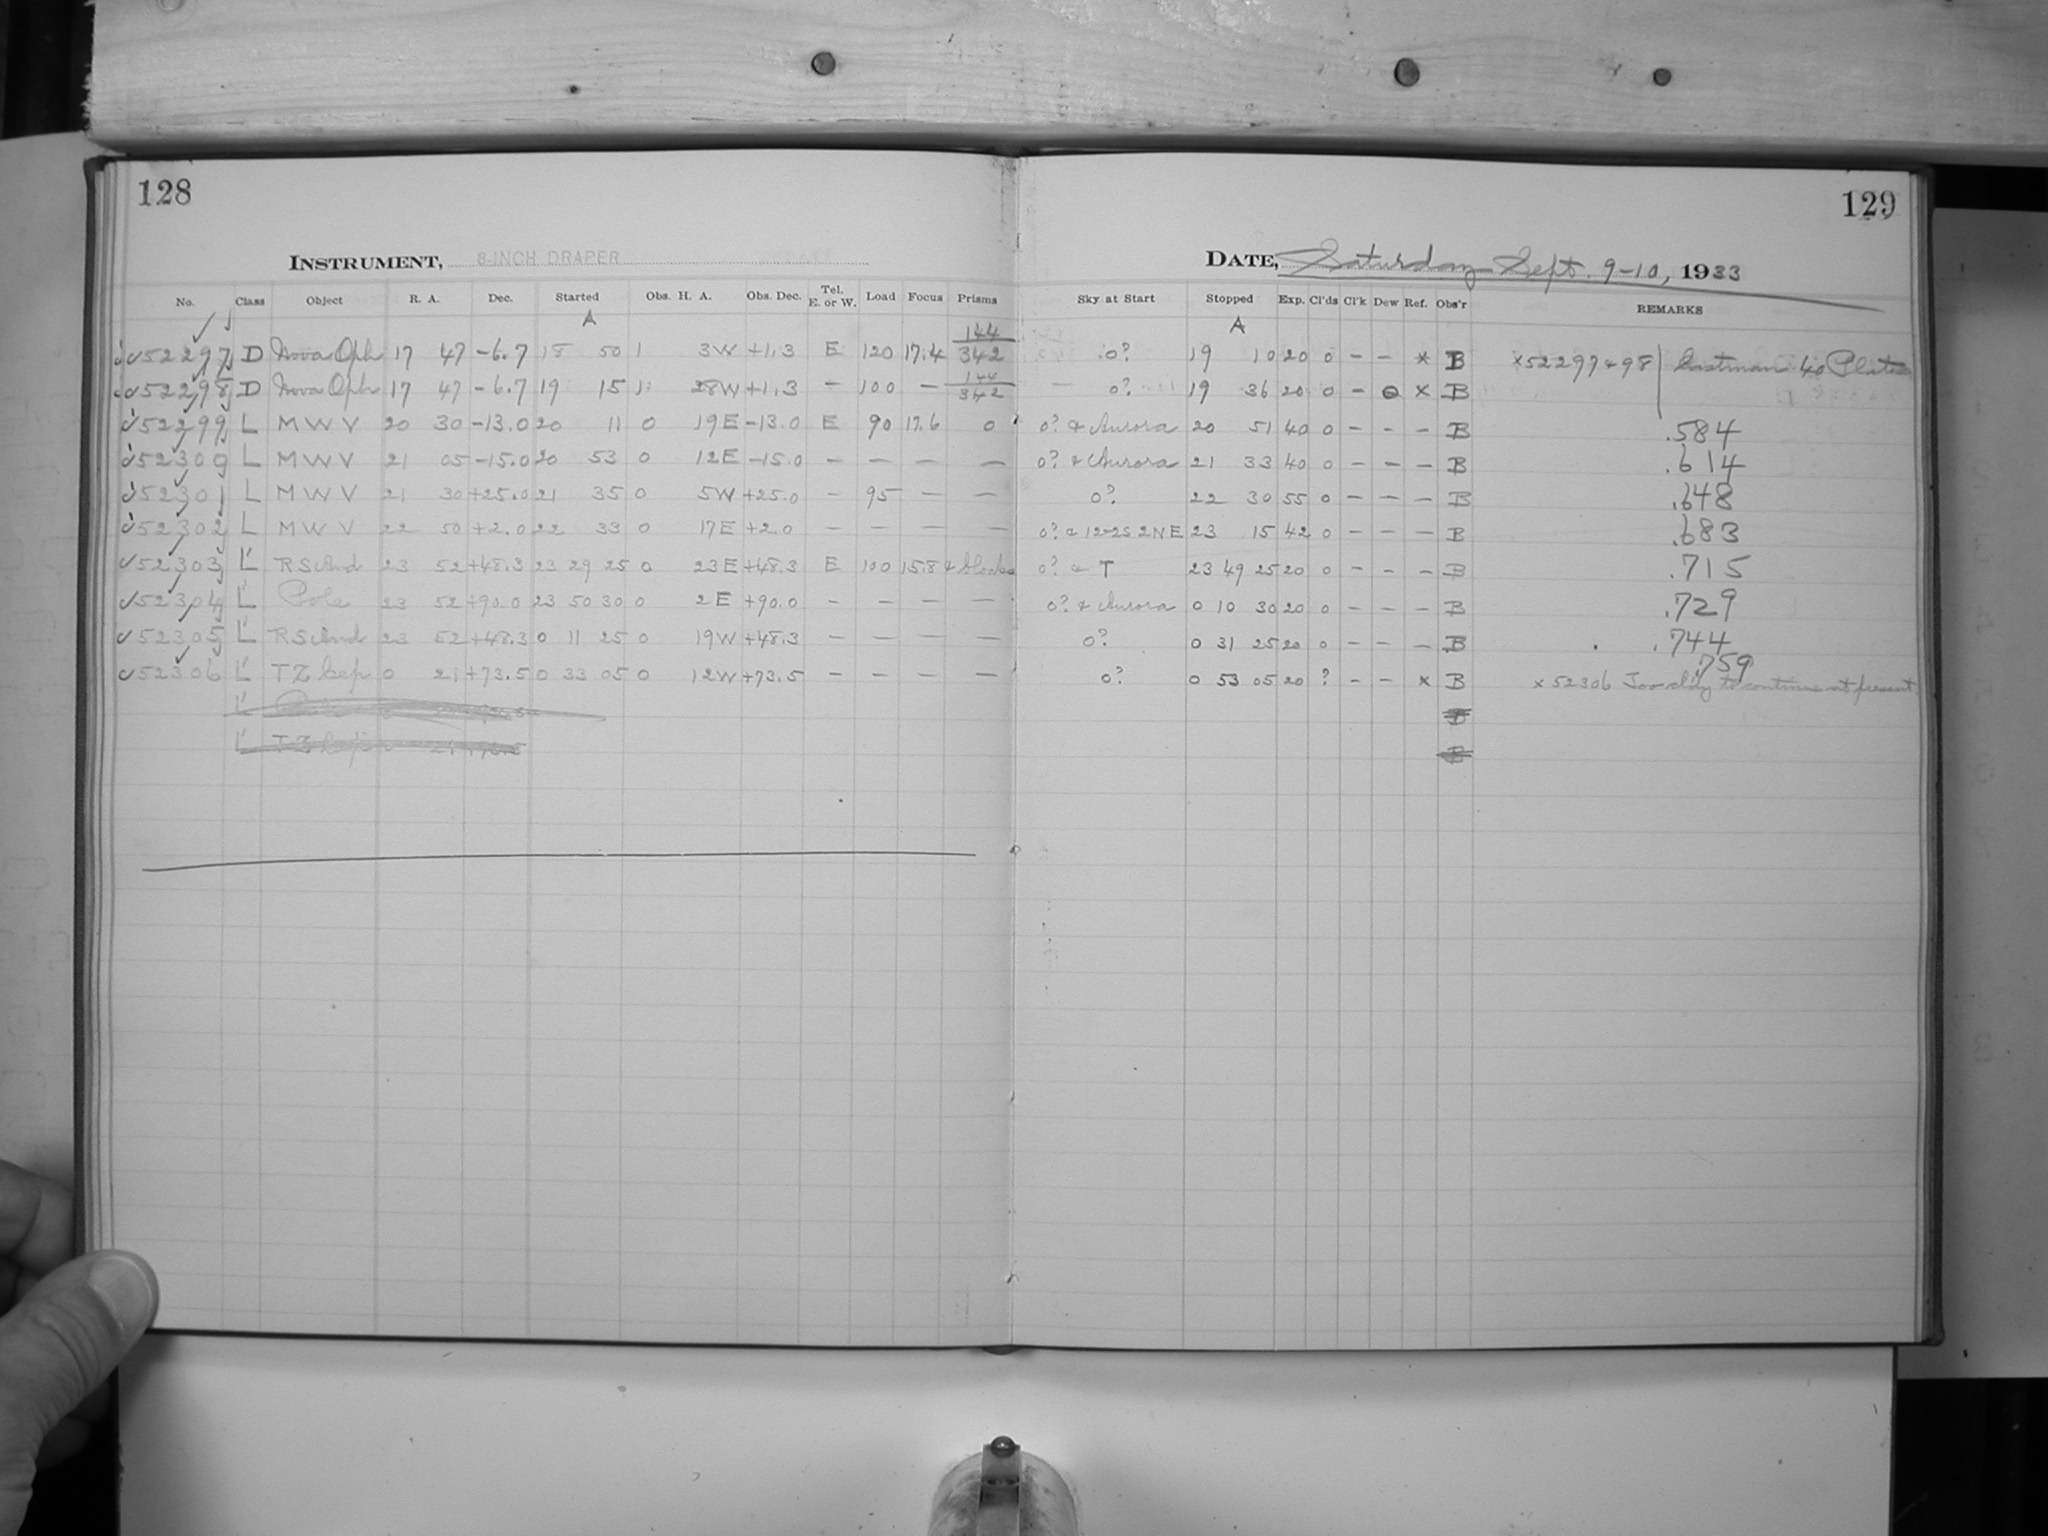 128
129
INSTRUMENT, 8-INCH DRAPER
DATE, Saturday Sept. 9-10, 1933
No. Class Object R. A. Dec. Started Obs. H. A. Obs. Dec. Tel. E. or W. Load Focus Prisms Sky at Start Stopped Exp. Cl'ds Cl'k Dew Ref. Obs'r REMARKS
A A
✓52297 D Nova Oph 17 47 -6.7 18 50 1 3W +1.3 E 120 17.4 144/342 0? 19 10 20 0 – – × B ×52297 & 98 Eastman 40 Plates
✓52298 D Nova Oph 17 47 -6.7 19 15 1 28W +1.3 – 100 – 144/342 – 0? 19 36 20 0 – 0 × B
✓52299 L M W V 20 30 -13.0 20 11 0 19E -13.0 E 90 17.6 0 0? & Aurora 20 51 40 0 – – – B .584
✓52300 L M W V 21 05 -15.0 20 53 0 12E -15.0 – – – – 0? & Aurora 21 33 40 0 – – – B .614
✓52301 L M W V 21 30 +25.0 21 35 0 5W +25.0 – 95 – – 0? 22 30 55 0 – – – B .648
✓52302 L M W V 22 50 +2.0 22 33 0 17E +2.0 – – – – 0? & 12-2S 2NE 23 15 42 0 – – – B .683
✓52303 L' RS And 23 52 +48.3 23 29 25 0 23E +48.3 E 100 15.8 0? & T 23 49 25 20 0 – – – B .715
✓52304 L' Pole 23 52 +90.0 23 50 30 0 2E +90.0 – – – – 0? & Aurora 0 10 30 20 0 – – – B .729
✓52305 L' RS And 23 52 +48.3 0 11 25 0 19W +48.3 – – – – 0? 0 31 25 20 0 – – – B .744
✓52306 L' TZ Cep 0 21 +73.5 0 33 05 0 12W +73.5 – – – – 0? 0 53 05 20 ? – – × B .759 ×52306 Too cldy to continue at present.
L' B
L' TZ Cep 21 B